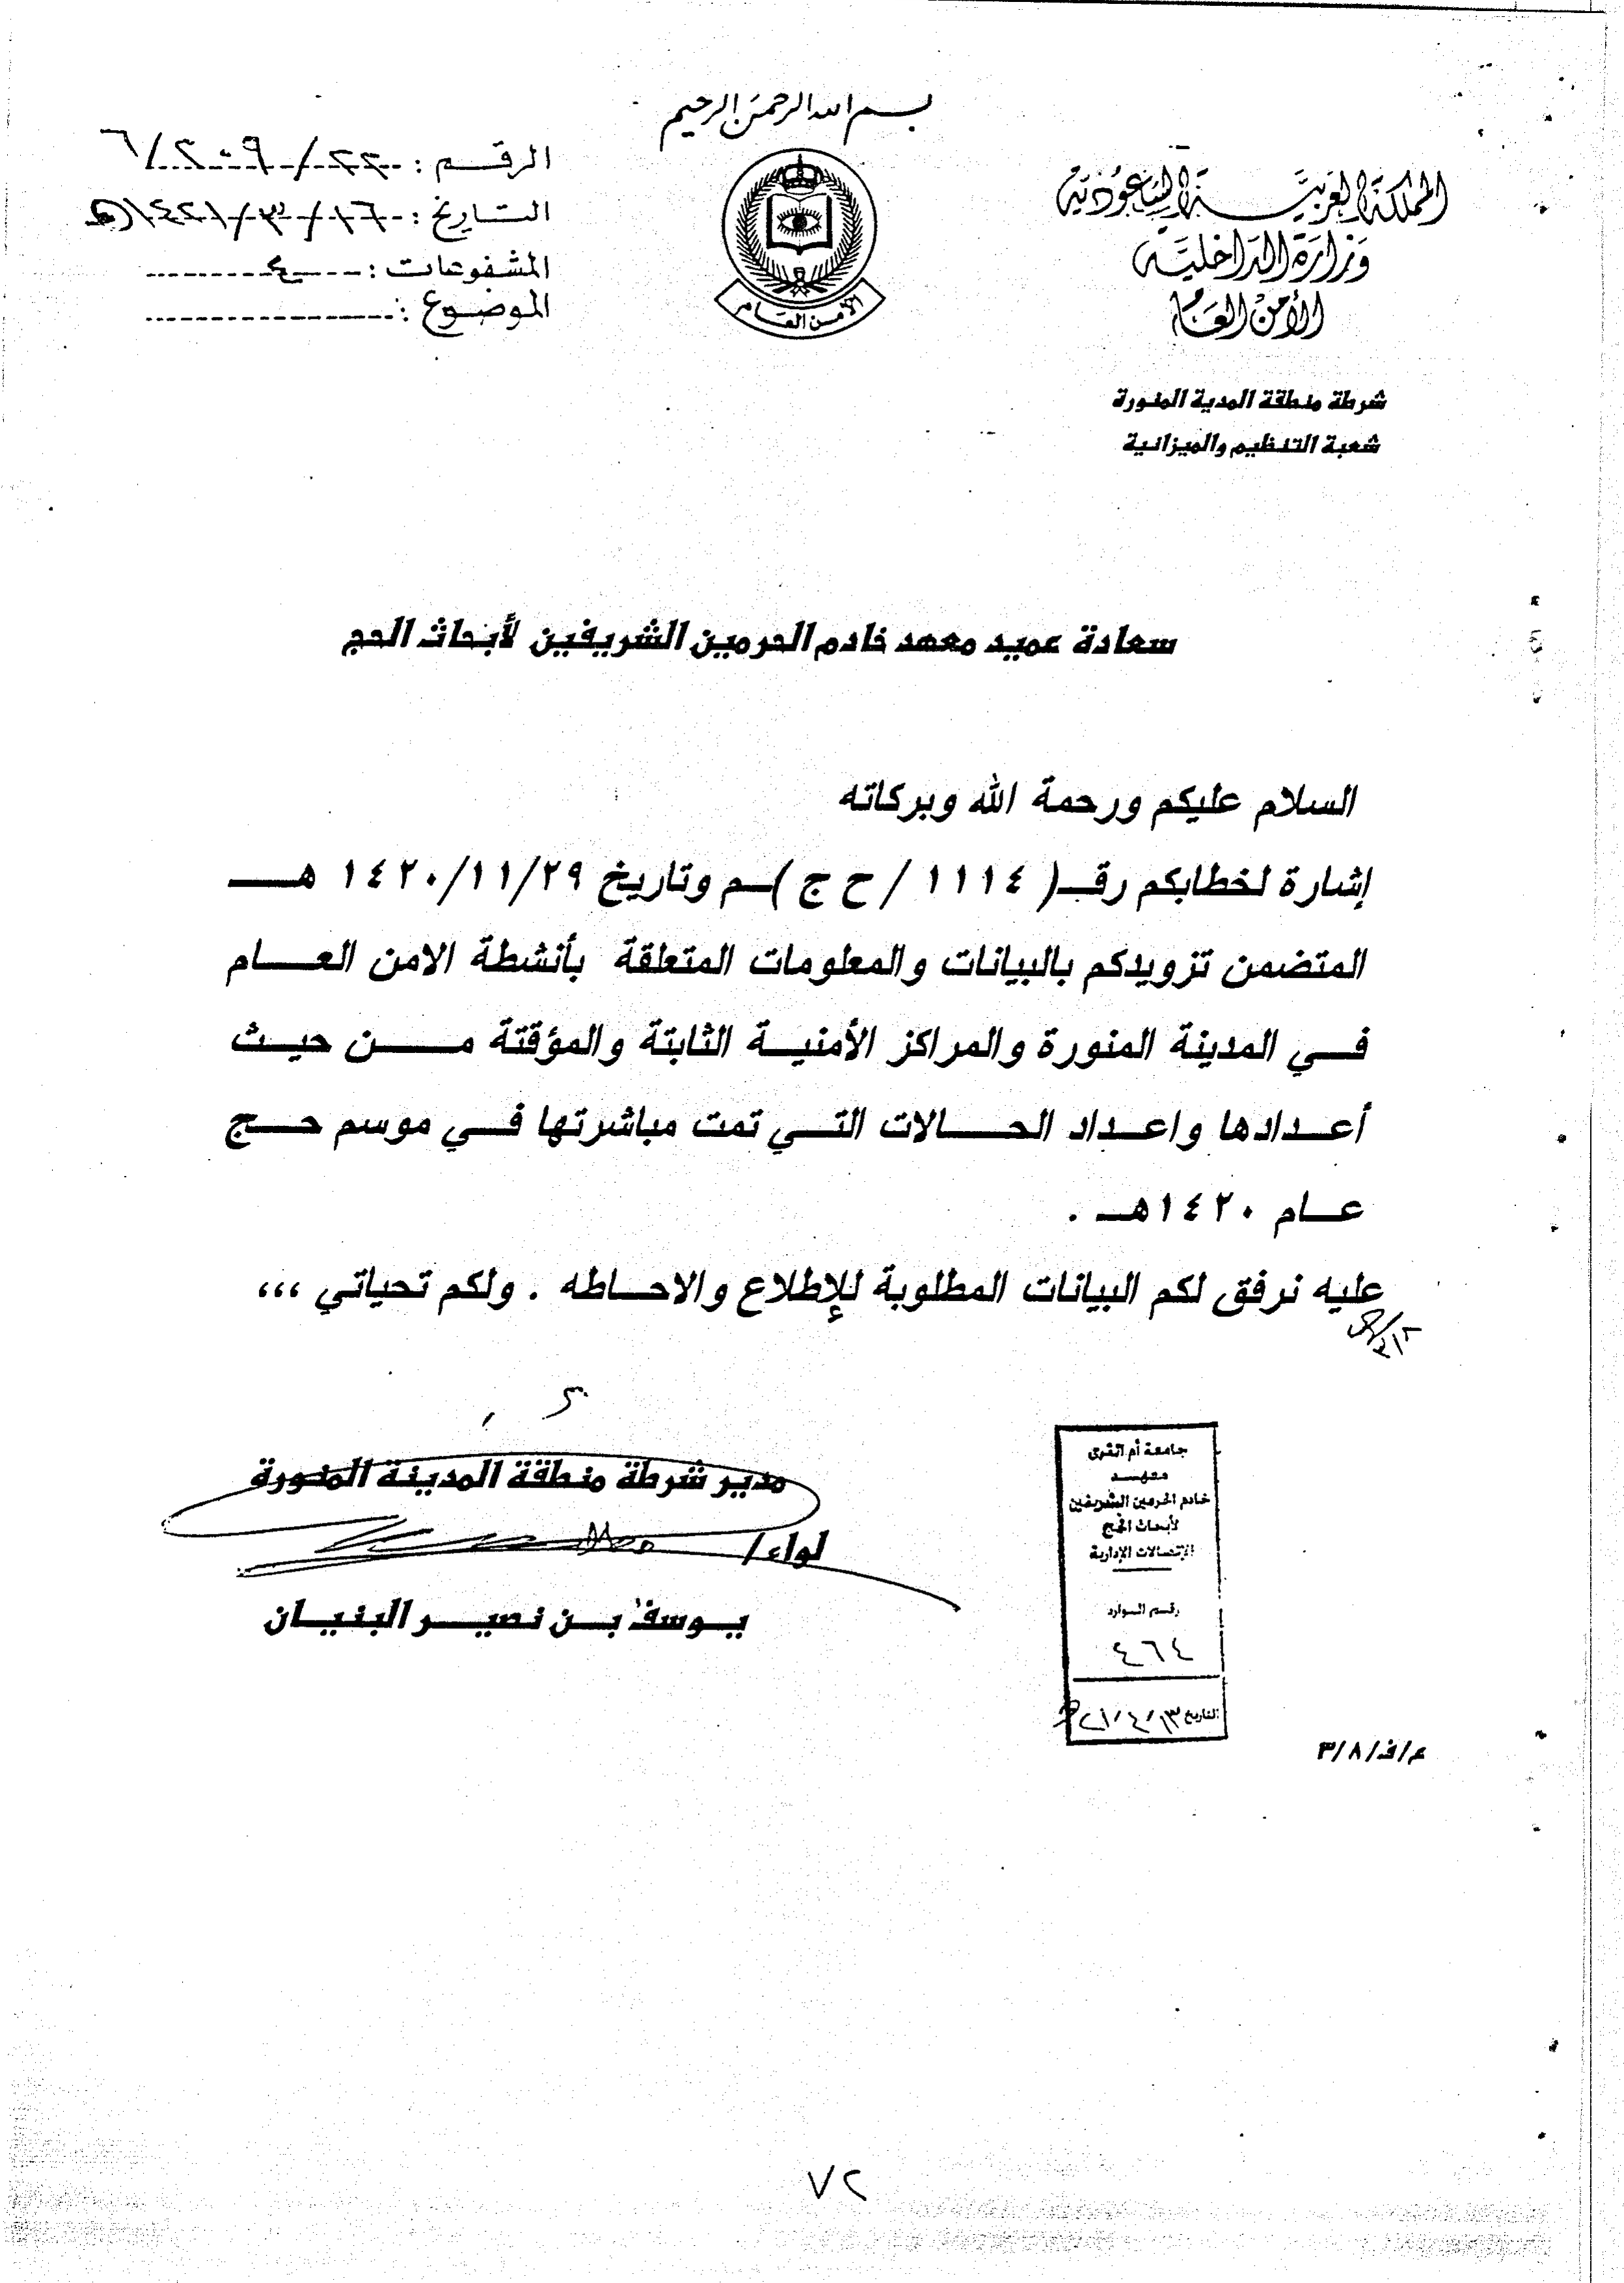 بسم الله الرحمن الرحيم
المملكة العربية السعودية
وزارة الداخلية
الأمن العام
شرطة منطقة المدية المنورة
شعبة التنظيم والميزانية
الأمن العام
الرقم :
التاريخ : ١٦/٣/١٤٢١
المشفوعات :
الموضوع :
سعادة عميد معهد خادم الحرمين الشريفين لأبحاث الحج
السلام عليكم ورحمة الله وبركاته
إشارة لخطابكم رقـ( ١١١٤ / ح ج )ـم وتاريخ ١٤٢٠/١١/٢٩ هـ
المتضمن تزويدكم بالبيانات والمعلومات المتعلقة بأنشطة الامن العام
في المدينة المنورة والمراكز الأمنية الثابتة والمؤقتة من حيث
أعدادها واعداد الحالات التي تمت مباشرتها في موسم حج
عام ١٤٢٠هـ .
عليه نرفق لكم البيانات المطلوبة للإطلاع والاحاطه . ولكم تحياتي ،،،
مدير شرطة منطقة المدينة المنورة
لواء/
يوسف بن نصير البنيان
جامعة أم القرى
معهد
خادم الحرمين الشريفين
لأبحاث الحج
الإتصالات الإدارية
رقم الوارد
٤٦٤
التاريخ ١٣/٤/٢١
ع/ف/٣/٨
٧٢